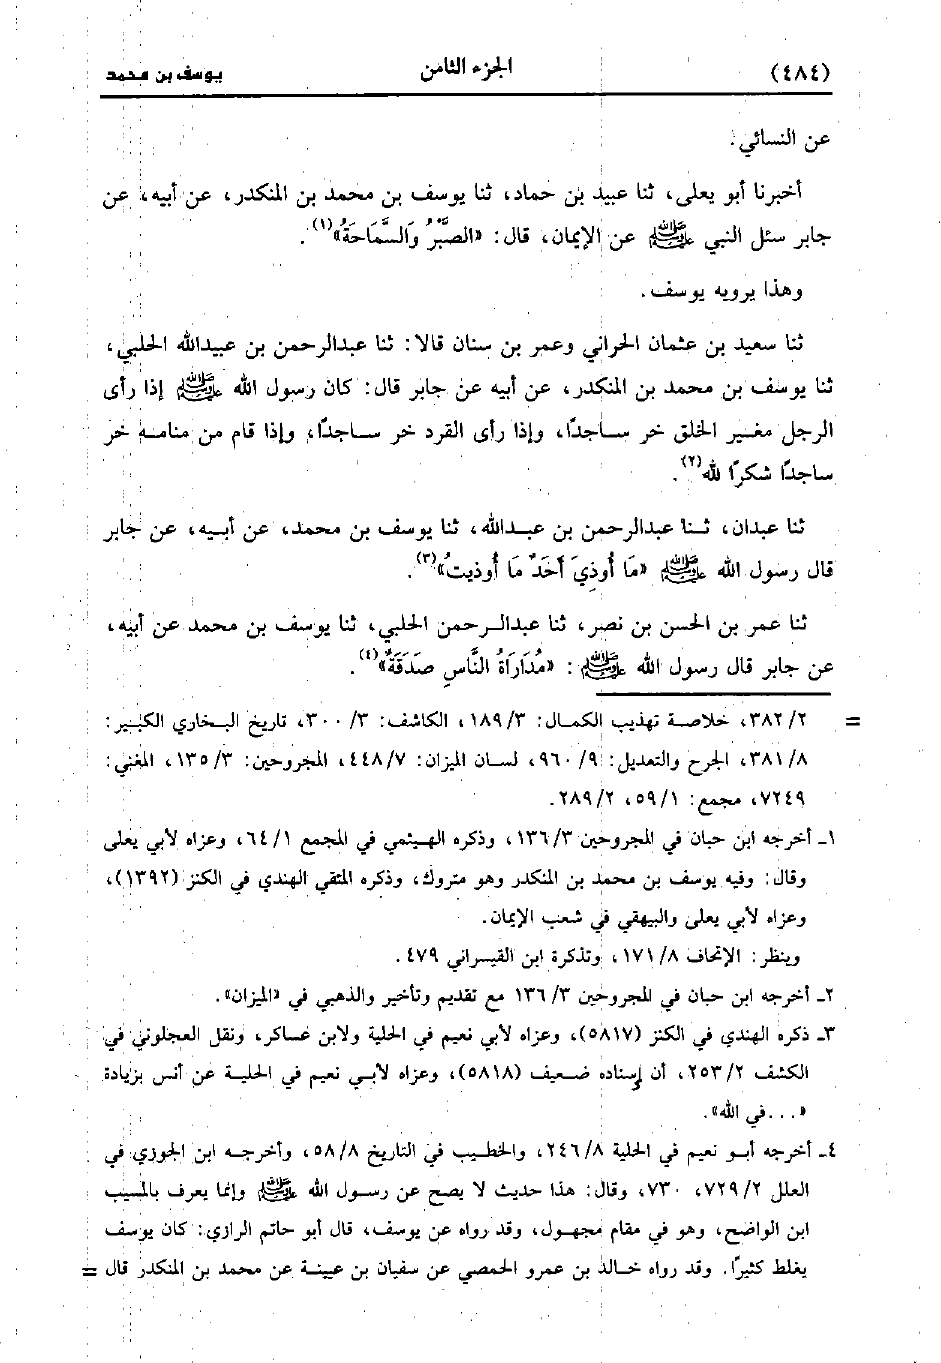 (٤٨٤) الجزء الثامن يوسف بن محمد
عن النسائي.
أخبرنا أبو يعلى، ثنا عبيد بن حماد، ثنا يوسف بن محمد بن المنكدر، عن أبيه، عن
جابر سئل النبي ﷺ عن الإيمان، قال: «الصَّبْرُ وَالسَّمَاحَةُ»(١).
وهذا يرويه يوسف.
ثنا سعيد بن عثمان الحراني وعمر بن سنان قالا: ثنا عبدالرحمن بن عبيدالله الحلبي،
ثنا يوسف بن محمد بن المنكدر، عن أبيه عن جابر قال: كان رسول الله ﷺ إذا رأى
الرجل مغير الخلق خر ساجدًا، وإذا رأى القرد خر ساجدًا، وإذا قام من منامه خر
ساجدًا شكرًا لله(٢).
ثنا عبدان، ثنا عبدالرحمن بن عبدالله، ثنا يوسف بن محمد، عن أبيه، عن جابر
قال رسول الله ﷺ «مَا أُوذِيَ أَحَدٌ مَا أُوذيتُ»(٣).
ثنا عمر بن الحسن بن نصر، ثنا عبدالرحمن الحلبي، ثنا يوسف بن محمد عن أبيه،
عن جابر قال رسول الله ﷺ: «مُدَارَاةُ النَّاسِ صَدَقَةٌ»(٤).
= ٣٨٢/٢، خلاصة تهذيب الكمال: ١٨٩/٣، الكاشف: ٣٠٠/٣، تاريخ البخاري الكبير:
٣٨١/٨، الجرح والتعديل: ٩٦٠/٩، لسان الميزان: ٤٤٨/٧، المجروحين: ١٣٥/٣، المغني:
٧٢٤٩، مجمع: ٥٩/١، ٢٨٩/٢.
١ـ أخرجه ابن حبان في المجروحين ١٣٦/٣، وذكره الهيثمي في المجمع ٦٤/١، وعزاه لأبي يعلى
وقال: وفيه يوسف بن محمد بن المنكدر وهو متروك، وذكره المتقي الهندي في الكنز (١٣٩٢)،
وعزاه لأبي يعلى والبيهقي في شعب الإيمان.
وينظر: الإتحاف ١٧١/٨، وتذكرة ابن القيسراني ٤٧٩.
٢ـ أخرجه ابن حبان في المجروحين ١٣٦/٣ مع تقديم وتأخير والذهبي في «الميزان».
٣ـ ذكره الهندي في الكنز (٥٨١٧)، وعزاه لأبي نعيم في الحلية ولابن عساكر، ونقل العجلوني في
الكشف ٢٥٣/٢، أن إسناده ضعيف (٥٨١٨)، وعزاه لأبي نعيم في الحلية عن أنس بزيادة
«...في الله».
٤ـ أخرجه أبو نعيم في الحلية ٢٤٦/٨، والخطيب في التاريخ ٥٨/٨، وأخرجه ابن الجوزي في
العلل ٧٢٩/٢، ٧٣٠، وقال: هذا حديث لا يصح عن رسول الله ﷺ وإنما يعرف بالمسيب
ابن الواضح، وهو في مقام مجهول، وقد رواه عن يوسف، قال أبو حاتم الرازي: كان يوسف
يغلط كثيرًا. وقد رواه خالد بن عمرو الحمصي عن سفيان بن عيينة عن محمد بن المنكدر قال =